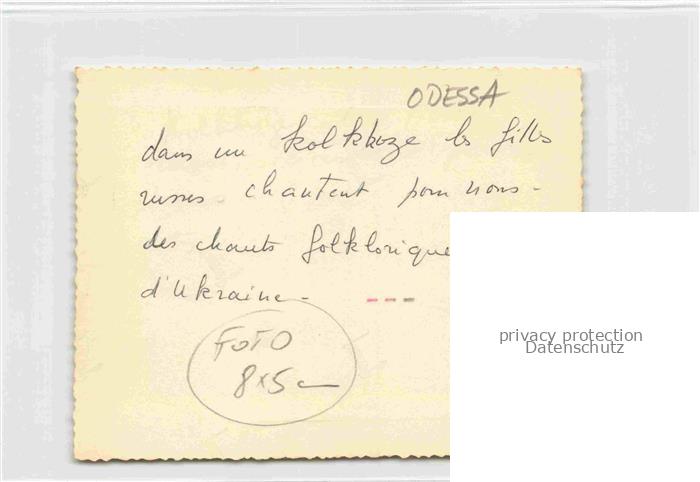 ODESSA
dans un kolkhoze les filles
russes chantent pour nous -
des chants folklorique
d'Ukraine -
FOTO
8x5 cm
privacy protection
Datenschutz